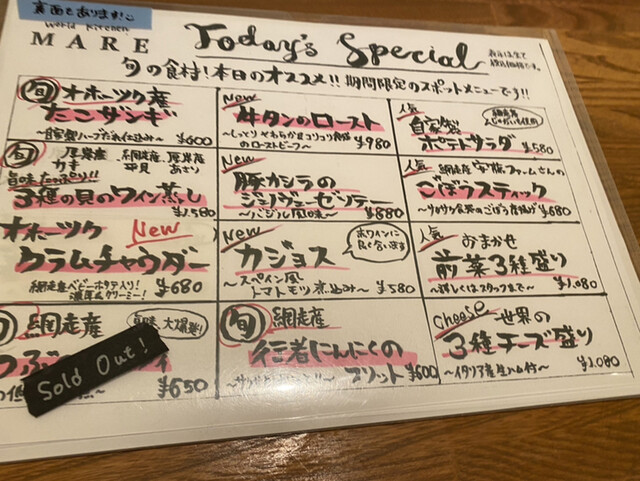 裏面もあります!
World Kitchen
MARE
Today's Special
旬の食材!本日のオススメ!!期間限定のスポットメニューです!!
旬 オホーツク産
たこザンギ
~自家製ハーブだれ仕込み~ ¥600
New
牛タンのロースト
のローストビーフ~ ¥980
人気
自家製
ポテトサラダ ¥580
旬 厚岸産 網走産、厚岸産
カキ 帆貝 あさり
旨味たっぷり!!
3種の貝のワイン蒸し
¥1,580
New
豚カシラの
ジェノヴェーゼソテー
~バジル風味~ ¥880
人気
ごぼうスティック
¥680
オホーツク New
クラムチャウダー
網走産ベビーホタテ入り!
濃厚&クリーミー! ¥680
New
カジョス
赤ワインに
良く合います
~スペイン風
トマトモツ煮込み~ ¥580
人気 おまかせ
前菜3種盛り
~詳しくはスタッフまで~ ¥1,080
網走産
旨味、大爆発!
つぶ
Sold Out!
¥650
旬 網走産
行者にんにくの
リゾット ¥600
Cheese 世界の
3種チーズ盛り
~イタリア産生ハム付~ ¥1,080